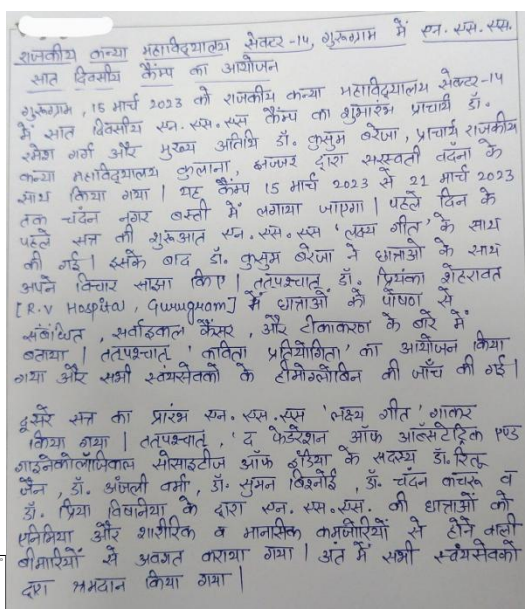 राजकीय कन्या महाविद्यालय सेक्टर -14, गुरूग्राम में एन. एस. एस.
सात दिवसीय कैंप का आयोजन
गुरूग्राम, 15 मार्च 2023 को राजकीय कन्या महाविद्यालय सेक्टर-14
में सात दिवसीय एन. एस. एस कैंप का शुभारंभ प्राचार्य डॉ.
रमेश गर्ग और मुख्य अतिथि डॉ. कुसुम बरेजा, प्राचार्य राजकीय
कन्या महाविद्यालय कुलाना, झज्जर द्वारा सरस्वती वंदना के
साथ किया गया | यह कैंम्प 15 मार्च 2023 से 21 मार्च 2023
तक चंदन नगर बस्ती में लगाया जाएगा | पहले दिन के
पहले सत्र की शुरूआत एन. एस. एस 'लक्ष्य गीत' के साथ
की गई | इसके बाद डॉ. कुसुम बरेजा ने छात्राओं के साथ
अपने विचार साझा किए | ततपश्चात् डॉ. प्रियंका शेहरावत
[R.V Hospital, Gurugram] में छात्राओं को पोषण से
संबंधित, सर्वाइकाल कैंसर, और टीकाकरण के बारे में
बताया | ततपश्चात् 'कविता प्रतियोगिता' का आयोजन किया
गया और सभी स्वंयसेवको के हीमोग्लोबिन की जाँच की गई |
दूसरे सत्र का प्रारंभ एन. एस. एस 'लक्ष्य गीत' गाकर
किया गया | ततपश्चात्, 'द फेडरेशन ऑफ ऑब्सटेट्रिक एण्ड
गाइनेकोलॉजिकल सोसाइटीज ऑफ इंडिया के सदस्य डॉ. रितू
जैन, डॉ. अंजली वर्मा, डॉ. सुमन बिश्नोई, डॉ. चंदन काचरू व
डॉ. प्रिया विषानिया के द्वारा एन. एस. एस. की छात्राओं को
एनिमिया और शारीरिक व मानसिक कमजोरियों से होने वाली
बीमारियों से अवगत कराया गया | अंत में सभी स्वंयसेवको
द्वारा श्रमदान किया गया |